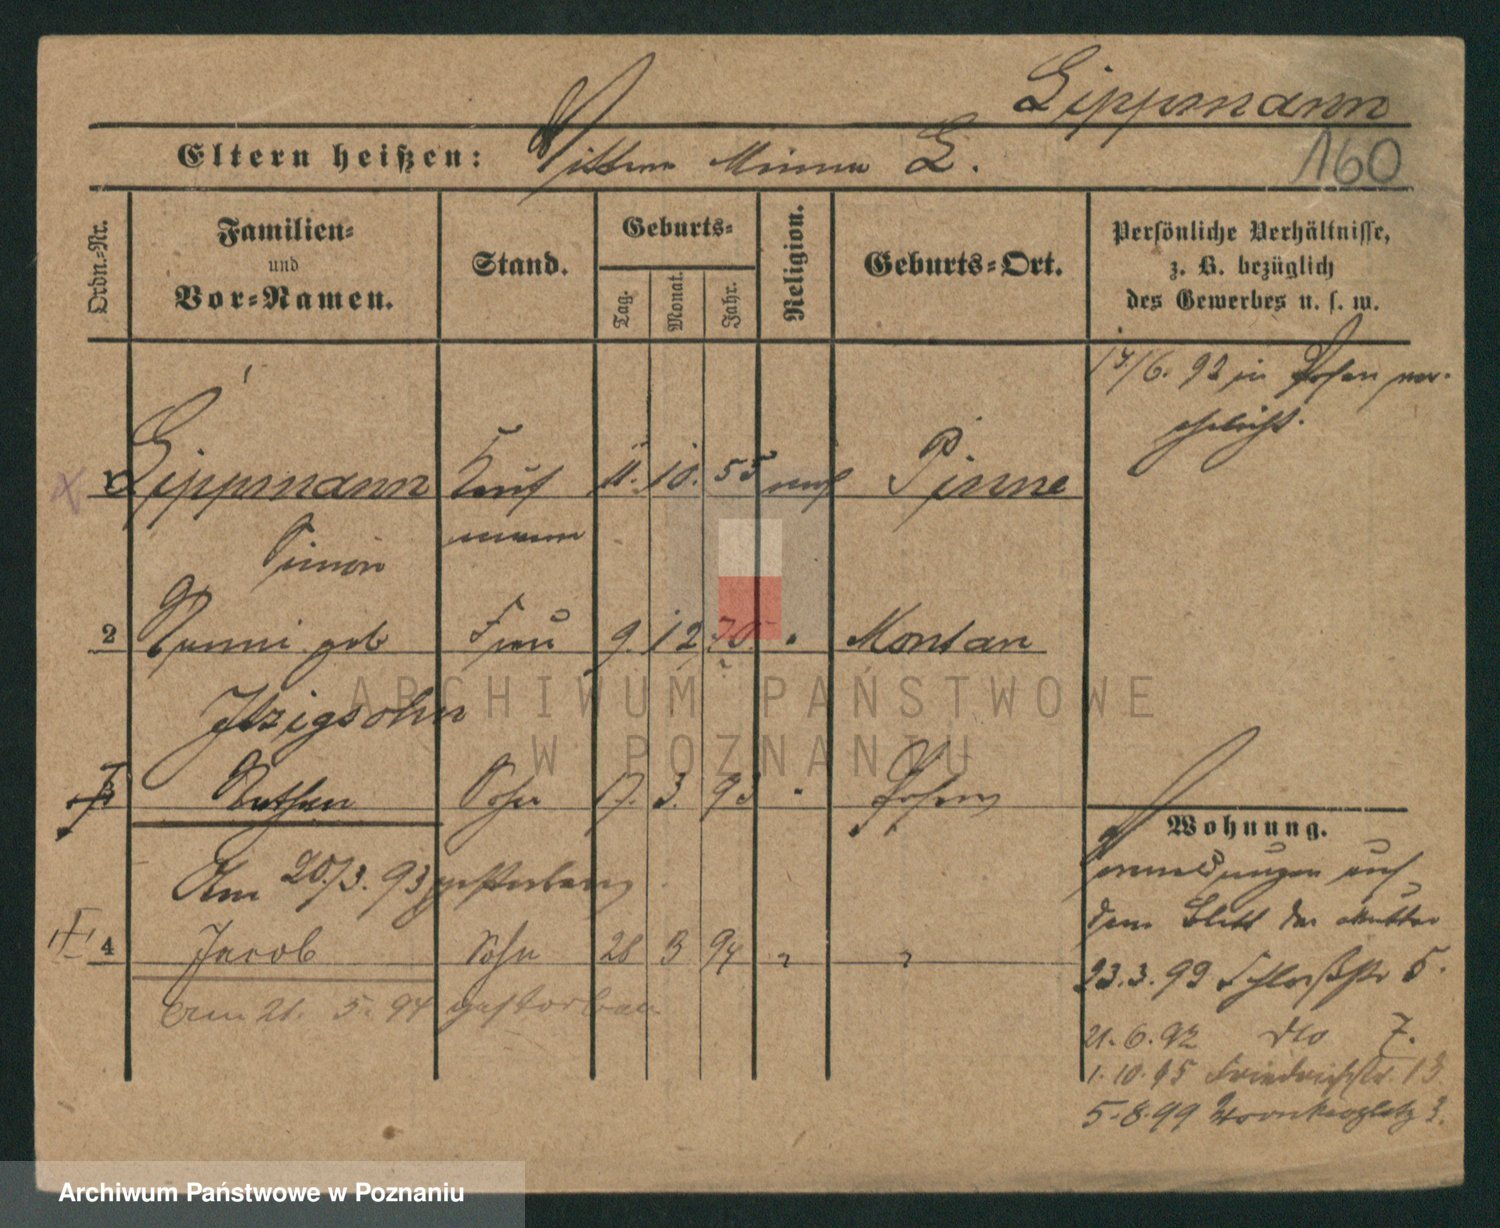 Lippmann
160
Eltern heißen: Wittwe Minna L.
Ordn.-Nr.
Familien-
und
Vor-Namen.
Stand.
Geburts-
Tag.
Monat.
Jahr.
Religion.
Geburts-Ort.
Persönliche Verhältnisse,
z. B. bezüglich
des Gewerbes u. s. w.
/6. 92 in Posen ver-
ehelicht.
1 Lippmann Kauf 11. 10. 55 mos Pinne
Simon mann
2 Nanni geb Frau 9. 12 70. " Montan
Itzigsohn
3 Nathan Sohn 17. 3. 93 " Posen
Am 20./3. 93 gestorben
4 Jacob Sohn 28 3 94 " "
am 21. 5. 94 gestorben
Wohnung.
Vormeldungen auf
dem Blatt der Mutter
23.3.93 Schloßstr 5.
21.6.92 dto 7.
1.10.95 Friedrichstr. 13
5.8.99 Wronkerplatz 3.
ARCHIWUM PAŃSTWOWE
W POZNANIU
Archiwum Państwowe w Poznaniu